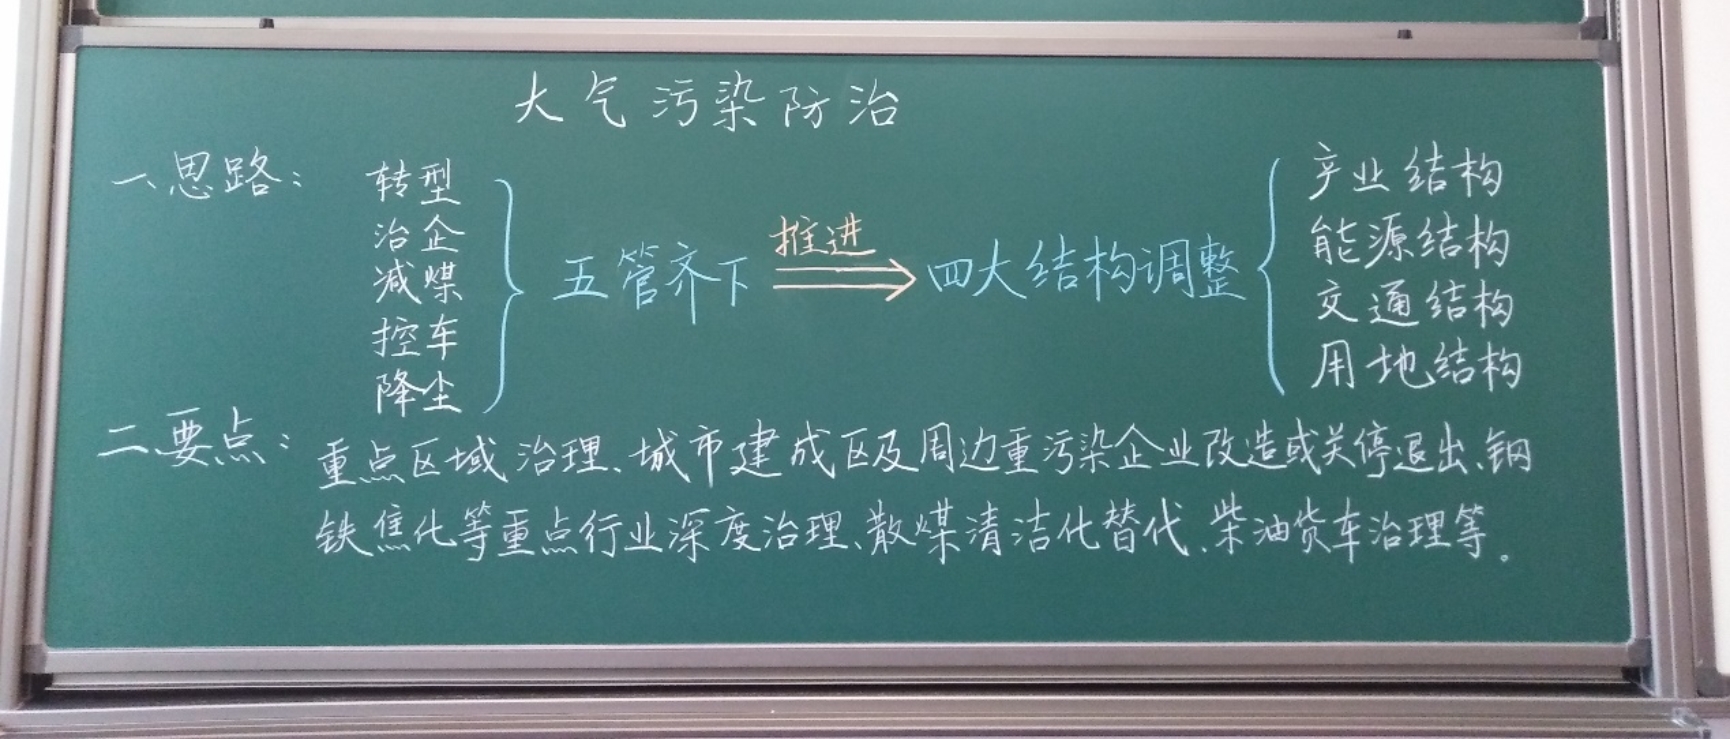 大气污染防治
一、思路：
转型
治企
减煤
控车
降尘
五管齐下
推进
四大结构调整
产业结构
能源结构
交通结构
用地结构
二、要点：
重点区域治理、城市建成区及周边重污染企业改造或关停退出、钢
铁焦化等重点行业深度治理、散煤清洁化替代、柴油货车治理等。